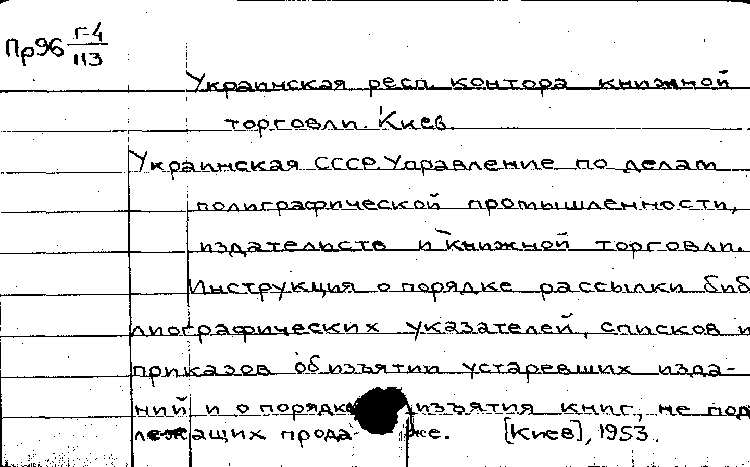 Пр96 Г-4/113
Украинская респ. контора книжной
торговли. Киев.
Украинская ССР. Управление по делам
полиграфической промышленности,
издательств и книжной торговли.
Инструкция о порядке рассылки биб
лиографических указателей, списков и
приказов об изъятии устаревших изда-
ний и о порядке изъятия книг, не под
лежащих прода- же. [Киев], 1953.